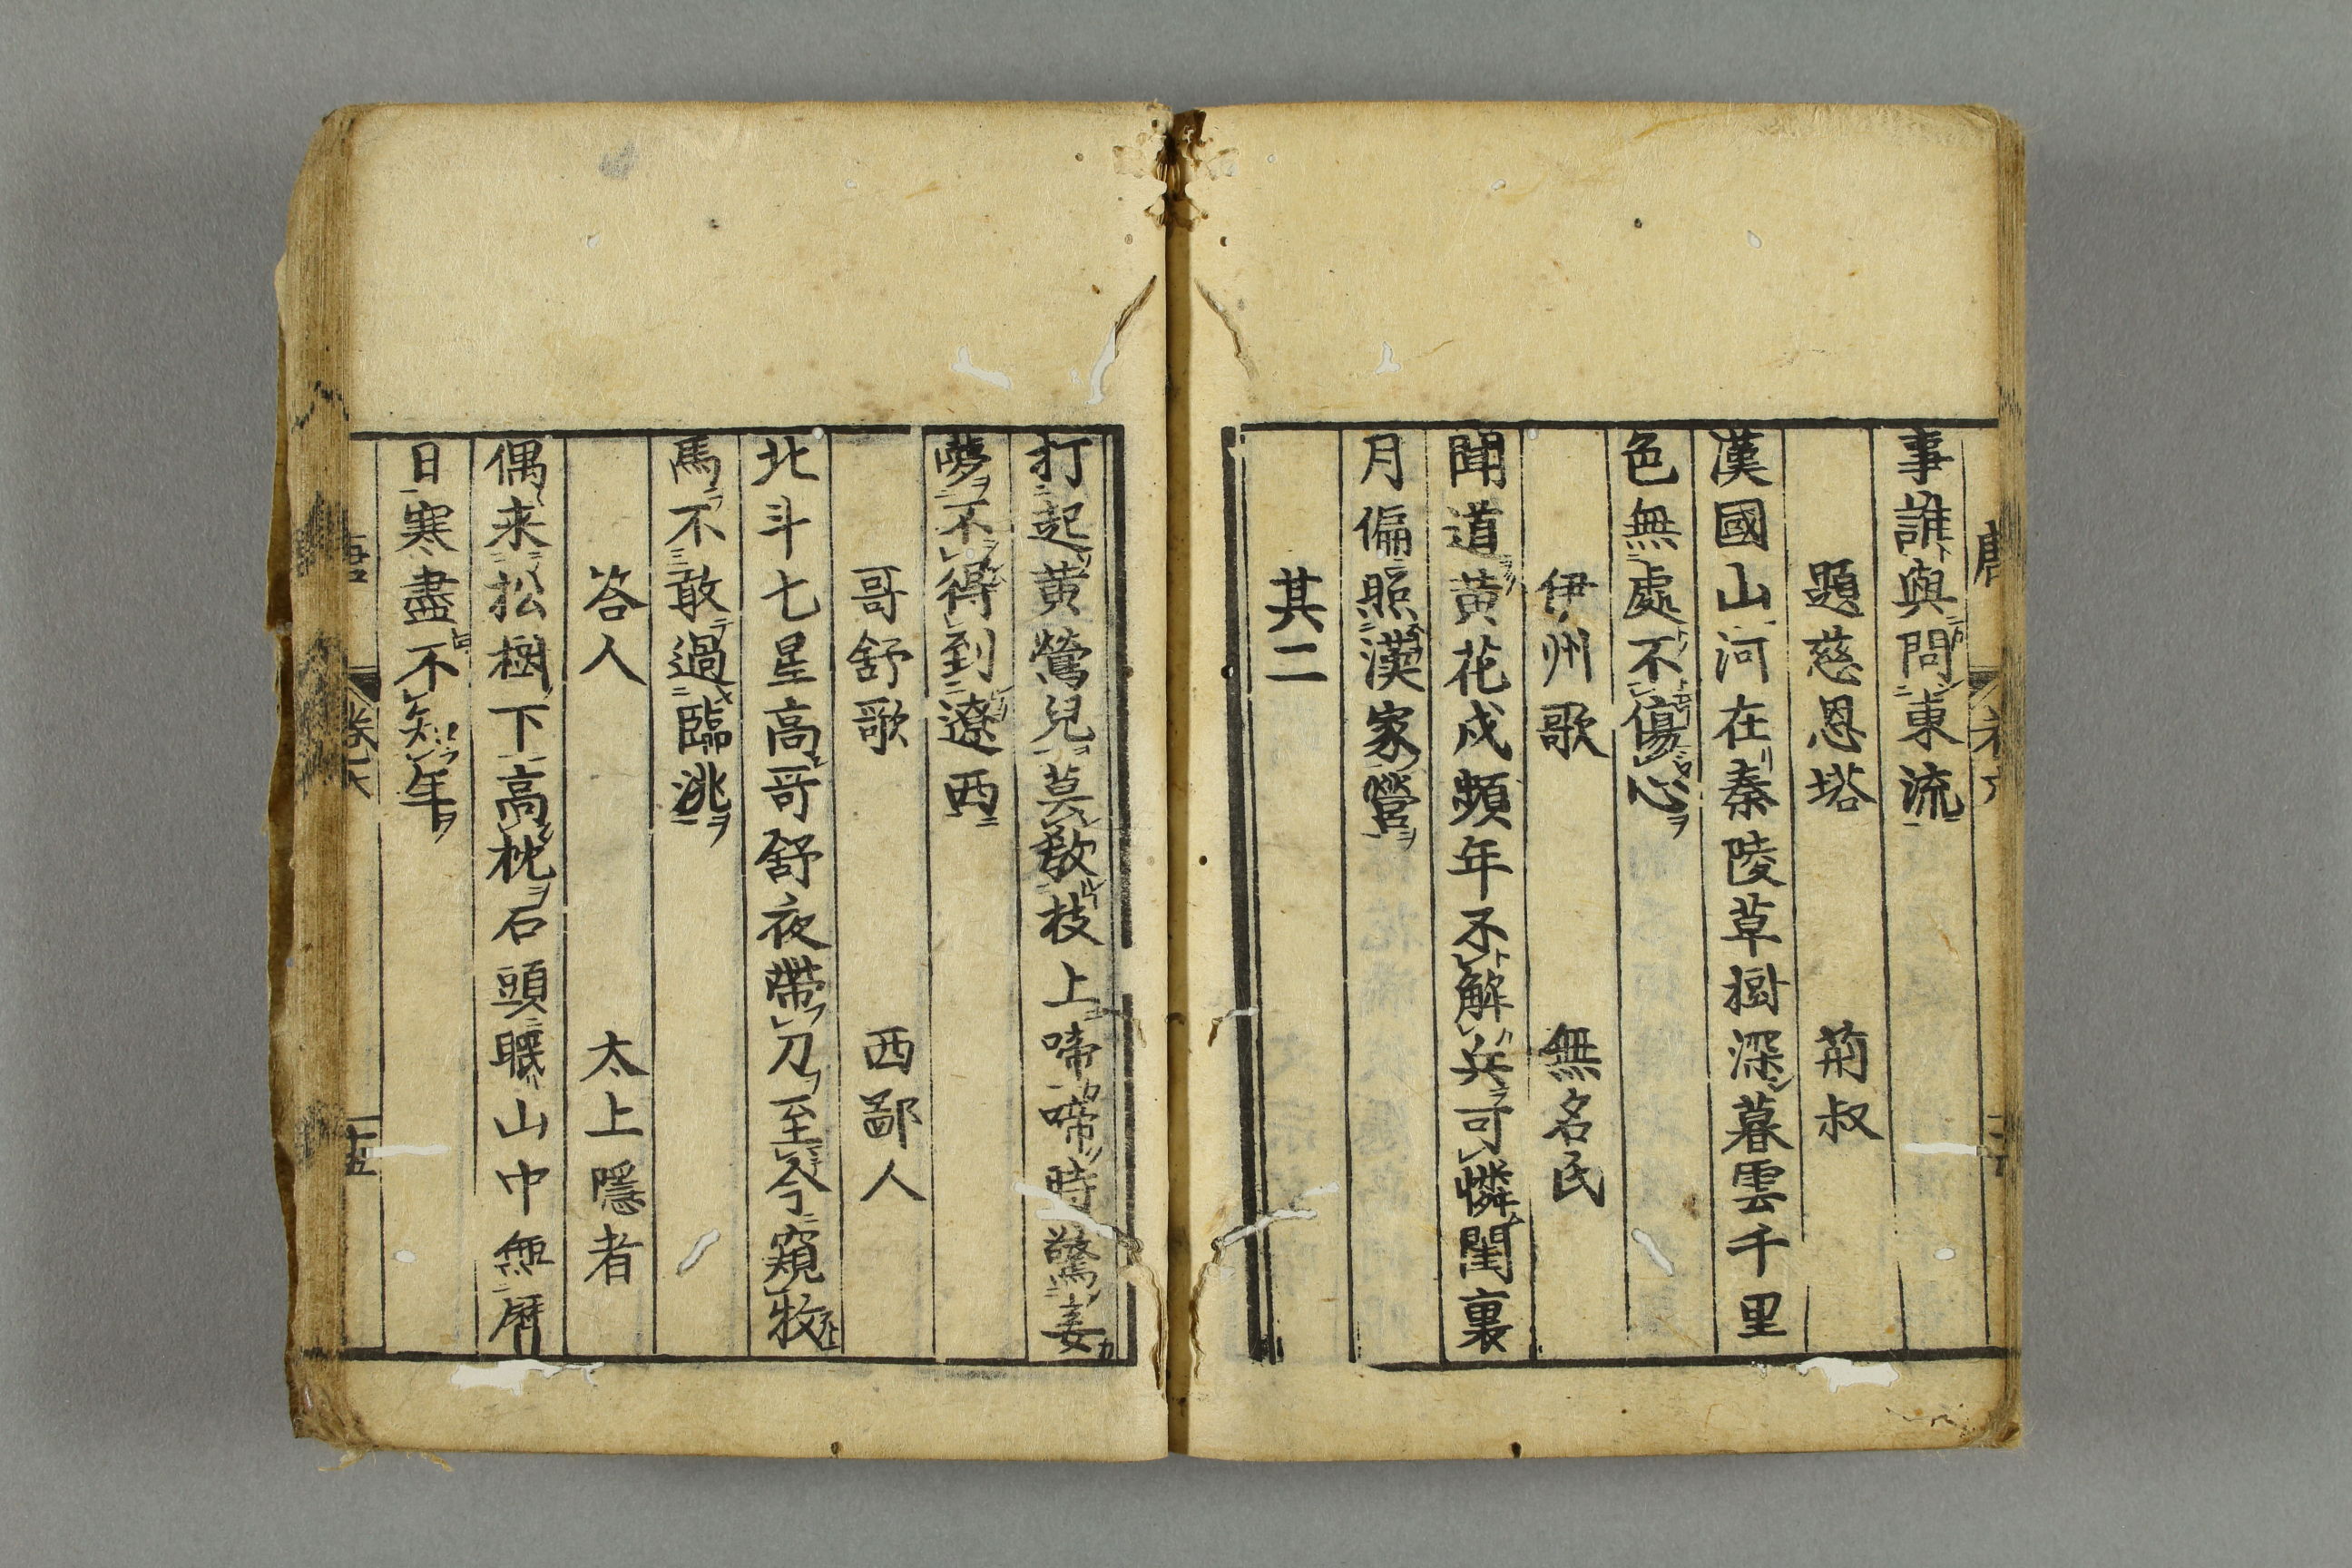 事誰與問東流
題慈恩塔　荊叔
漢國山河在秦陵草樹深暮雲千里
色無處不傷心
伊州歌　無名氏
聞道黄花戍頻年不解兵可憐閨裏
月偏照漢家營
其二
打起黄鶯兒莫教枝上啼啼時驚妾
夢不得到遼西
哥舒歌　西鄙人
北斗七星高哥舒夜帶刀至今窺牧
馬不敢過臨洮
答人　太上隱者
偶来松樹下高枕石頭眠山中無曆
日寒盡不知年